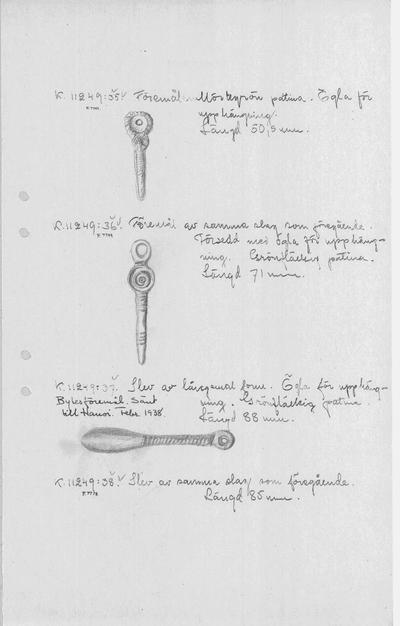 K. 11249:35. Föremål. Mörkgrön patina. Ögla för
upphängning.
Längd 50,5 mm.
K. 11249:36. Föremål av samma slag som föregående.
Försedd med ögla för upphäng-
ning. Grönfläckig patina.
Längd 71 mm.
K. 11249:37. Slev av långsmal form. Ögla för upphäng-
ning. Grönfläckig patina.
Bytesföremål. Sänt
till Hanoi. Febr. 1938.
Längd 88 mm.
K. 11249:38. Slev av samma slag som föregående.
Längd 85 mm.